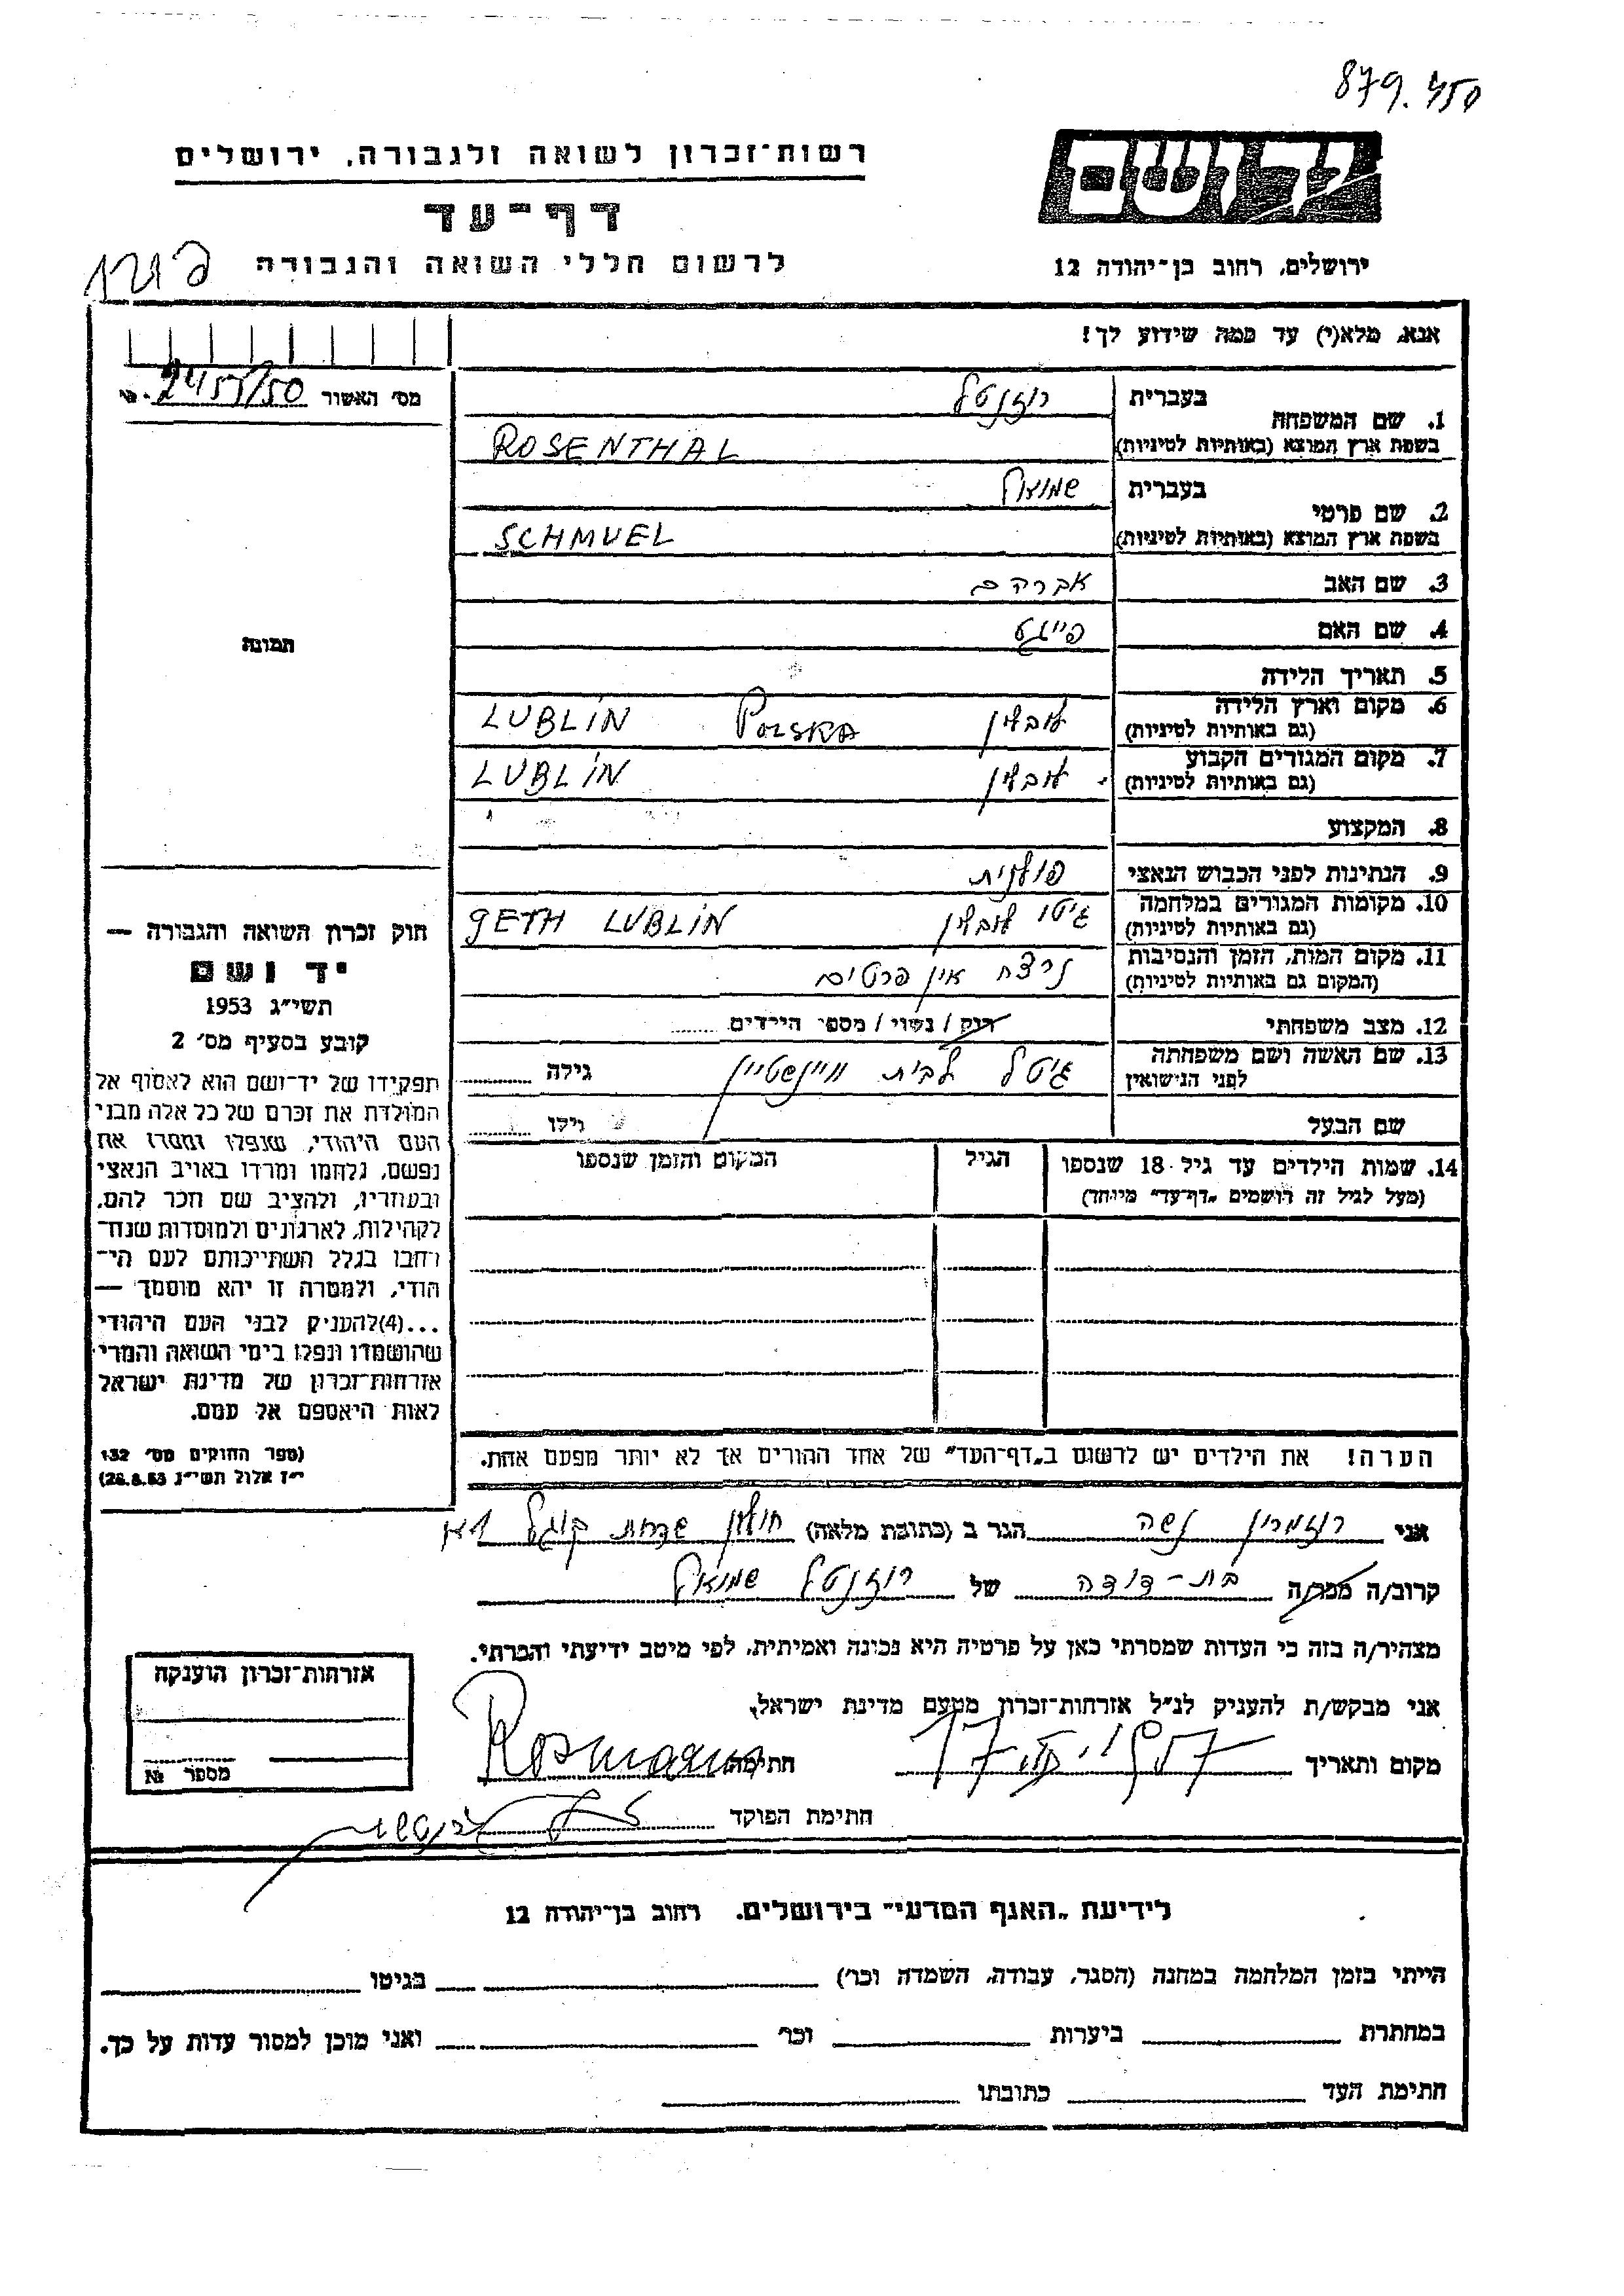 879.
רשות־זכרון לשואה ולגבורה, ירושלים
יד ושם
דף־עד
לרשום חללי השואה והגבורה
ירושלים, רחוב בן־יהודה 12
אנא, מלא(י) עד כמה שידוע לך!
מס' האשור
1. שם המשפחה
בעברית רוזנטל
בשפת ארץ המוצא (באותיות לטיניות) ROSENTHAL
2. שם פרטי
בעברית שמואל
בשפת ארץ המוצא (באותיות לטיניות) SCHMUEL
3. שם האב אברהם
4. שם האם פייגע
5. תאריך הלידה
6. מקום וארץ הלידה לובלין POLSKA LUBLIN
(גם באותיות לטיניות)
7. מקום המגורים הקבוע לובלין LUBLIN
(גם באותיות לטיניות)
8. המקצוע
9. הנתינות לפני הכבוש הנאצי פולנית
10. מקומות המגורים במלחמה גיטו לובלין GETH LUBLIN
(גם באותיות לטיניות)
11. מקום המות, הזמן והנסיבות נרצח אין פרטים
(המקום גם באותיות לטיניות)
12. מצב משפחתי רוק / נשוי / מספר הילדים
13. שם האשה ושם משפחתה גיטל לבית ויינשטיין גילה
לפני הנישואין
שם הבעל גילו
14. שמות הילדים עד גיל 18 שנספו הגיל המקום והזמן שנספו
(מעל לגיל זה רושמים "דף־עד" מיוחד)
הערה! את הילדים יש לרשום ב"דף־העד" של אחד ההורים אך לא יותר מפעם אחת.
תמונה
חוק זכרון השואה והגבורה —
יד ושם
תשי"ג 1953
קובע בסעיף מס' 2
תפקידו של יד־ושם הוא לאסוף אל
המולדת את זכרם של כל אלה מבני
העם היהודי, שנפלו ומסרו את
נפשם, נלחמו ומרדו באויב הנאצי
ובעוזריו, ולהציב שם וזכר להם,
לקהילות, לארגונים ולמוסדות שנח־
רבו בגלל השתייכותם לעם הי־
הודי, ולמטרה זו יהא מוסמך —
...(4)להעניק לבני העם היהודי
שהושמדו ונפלו בימי השואה והמרי
אזרחות־זכרון של מדינת ישראל
לאות היאספם אל עמם.
(ספר החוקים מס' 132
י"ז אלול תשי"ג 28.8.53)
אני רוזמרין הגר ב (כתובת מלאה) חולון שדרות קוגל
קרוב/ה מכר/ה בת-דודה של רוזנטל שמואל
מצהיר/ה בזה כי העדות שמסרתי כאן על פרטיה היא נכונה ואמיתית, לפי מיטב ידיעתי והכרתי.
אני מבקש/ת להעניק לנ"ל אזרחות־זכרון מטעם מדינת ישראל,
מקום ותאריך חתימה
חתימת הפוקד
אזרחות־זכרון הוענקה
מספר №
לידיעת "האגף המדעי" בירושלים. רחוב בן־יהודה 12
הייתי בזמן המלחמה במחנה (הסגר, עבודה, השמדה וכר') בגיטו
במחתרת ביערות וכר' ואני מוכן למסור עדות על כך.
חתימת העד כתובתו